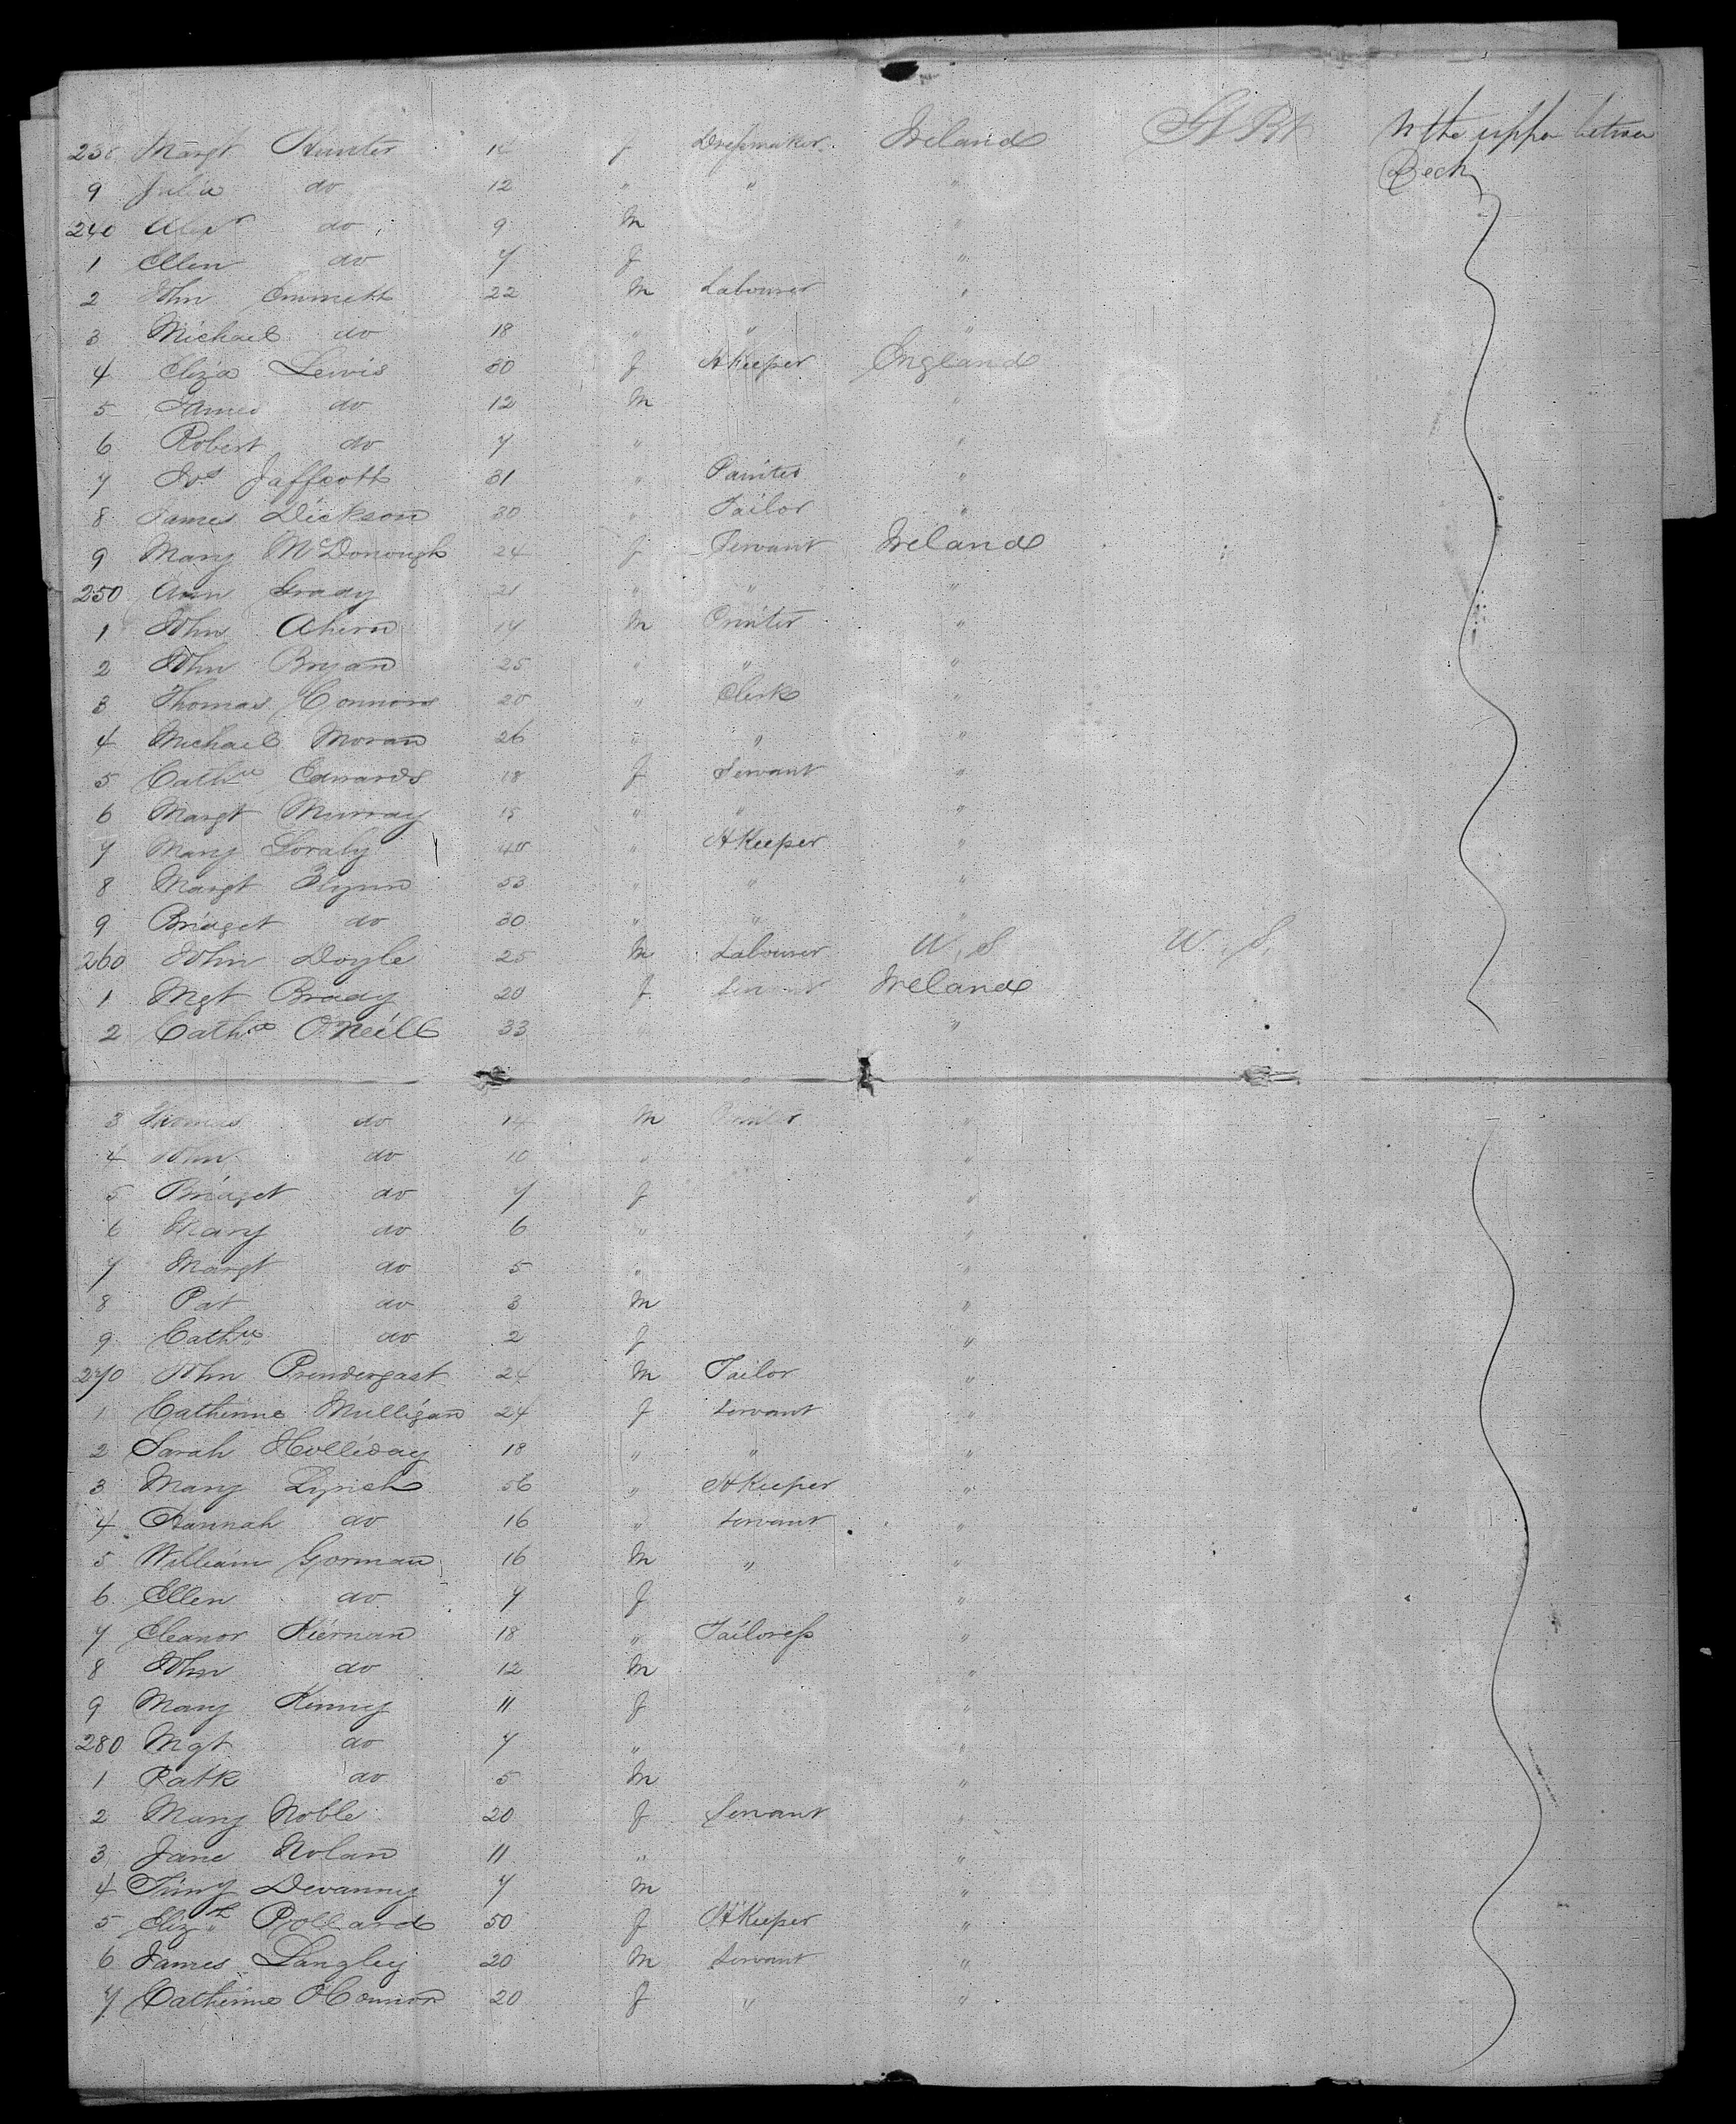 238 Margt Hunter 14 f Dressmaker Ireland Gt Brt In the upper between
9 Julia do 12 " " " Deck
240 Alexr do 9 M "
1 Ellen do 7 f "
2 John Emmett 22 M Labourer "
3 Michael do 18 " " "
4 Eliza Lewis 30 f HKeeper England
5 James do 12 M "
6 Robert do 7 " "
7 Jos Jaffcott 31 " Painter "
8 James Dickson 30 " Tailor "
9 Mary McDonough 24 f Servant Ireland
250 Ann Grady 21 " " "
1 John Ahern 14 M Printer "
2 John Bryan 25 " " "
3 Thomas Connors 20 " Clerk "
4 Michael Moran 26 " " "
5 Cathne Edwards 18 f Servant "
6 Margt Murray 15 " " "
7 Mary Goraly 40 " HKeeper "
8 Margt Flynn 53 " " "
9 Bridget do 30 " " "
260 John Doyle 25 M Labourer U.S U.S.
1 Mgt Brady 20 f Servant Ireland
2 Cathe O'Neill 33 "
3 Thomas do 14 M "
4 John do 10 " "
5 Bridget do 7 f "
6 Mary do 6 " "
7 Margt do 5 " "
8 Pat do 3 M "
9 Cathne do 2 f "
270 John Prendergast 24 M Tailor "
1 Catherine Mulligan 24 f Servant "
2 Sarah Holliday 18 " " "
3 Mary Lynch 56 " HKeeper "
4 Hannah do 16 " Servant "
5 William Gorman 16 M " "
6 Ellen do 7 f "
7 Eleanor Kiernan 18 " Tailoress "
8 John do 12 M "
9 Mary Kenny 11 f "
280 Mgt do 7 " "
1 Patk do 5 M "
2 Mary Noble 20 f Servant "
3 Jane Nolan 11 " "
4 Timy Devanny 7 M "
5 Elizth Pollard 50 f HKeeper "
6 James Langley 20 M Servant "
7 Catherine O'Connor 20 f " "